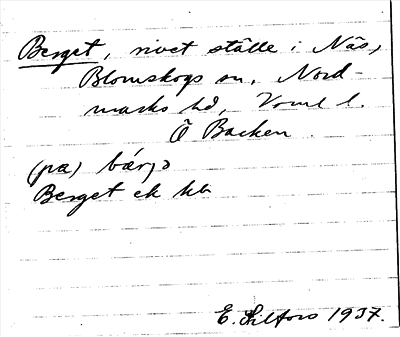 Berget, rivet ställe i Näs,
Blomskogs sn, Nord-
marks hd, Vrml l.
Ö Backen
(på) bärjə
Berget ek kb
E. Silfors 1937.